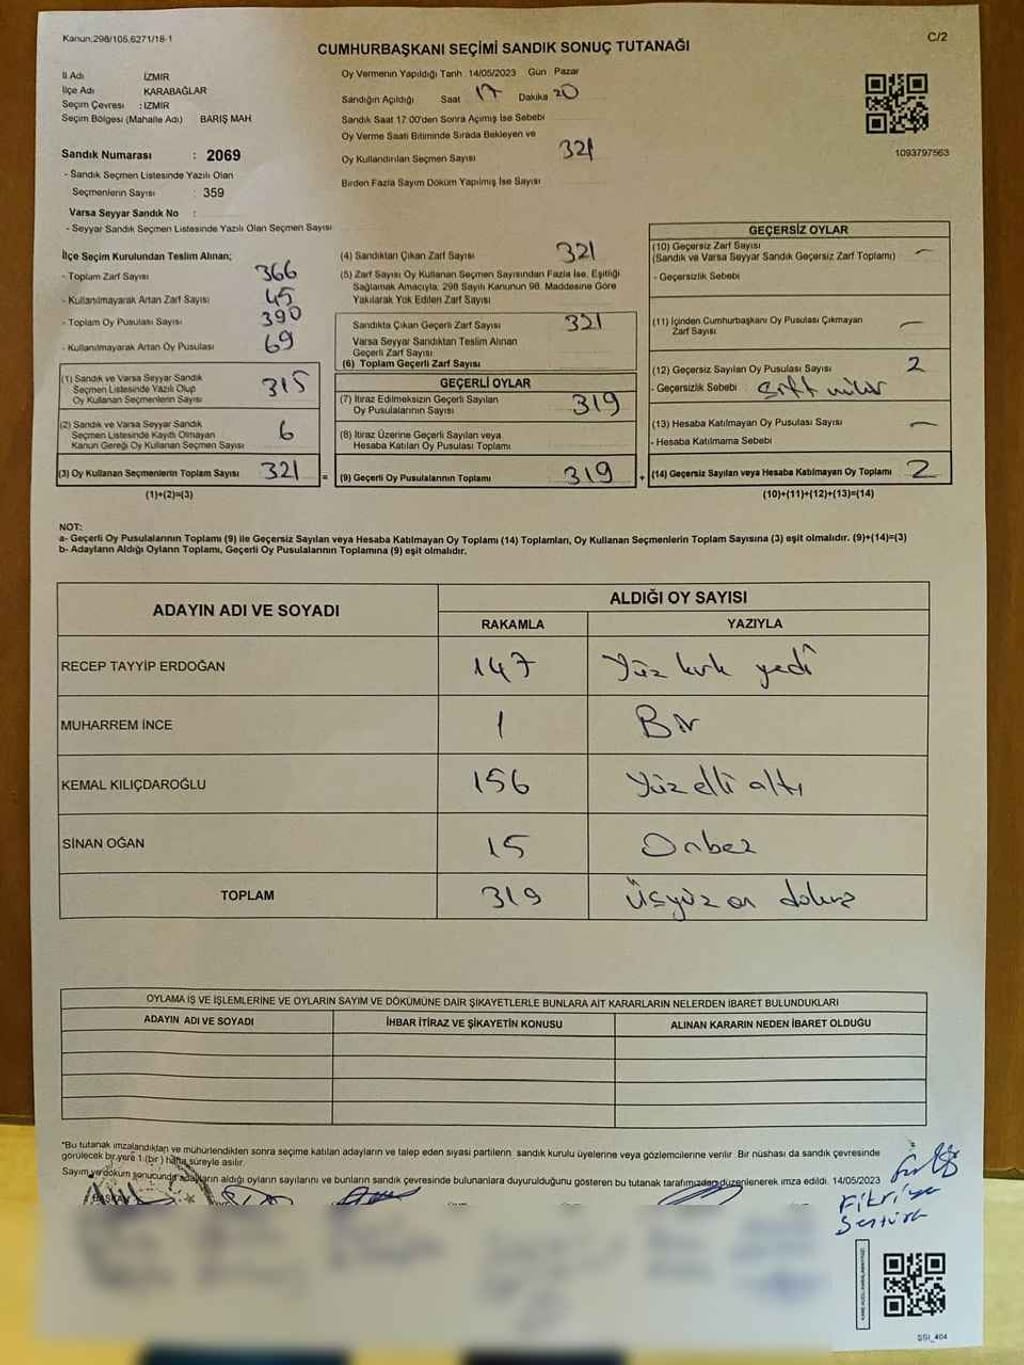 Kanun:298/105,6271/18-1
C/2
CUMHURBAŞKANI SEÇİMİ SANDIK SONUÇ TUTANAĞI
İl Adı İZMİR
İlçe Adı KARABAĞLAR
Seçim Çevresi : İZMİR
Seçim Bölgesi (Mahalle Adı) BARIŞ MAH
Sandık Numarası : 2069
- Sandık Seçmen Listesinde Yazılı Olan
Seçmenlerin Sayısı : 359
Varsa Seyyar Sandık No :
- Seyyar Sandık Seçmen Listesinde Yazılı Olan Seçmen Sayısı
Oy Vermenin Yapıldığı Tarih 14/05/2023 Gün Pazar
Sandığın Açıldığı Saat 17 Dakika 20
Sandık Saat 17:00'den Sonra Açımış İse Sebebi
Oy Verme Saati Bitiminde Sırada Bekleyen ve
Oy Kullandırılan Seçmen Sayısı 321
Birden Fazla Sayım Döküm Yapılmış İse Sayısı
1093797563
İlçe Seçim Kurulundan Teslim Alınan;
- Toplam Zarf Sayısı 366
- Kullanılmayarak Artan Zarf Sayısı 45
- Toplam Oy Pusulası Sayısı 390
- Kullanılmayarak Artan Oy Pusulası 69
(1) Sandık ve Varsa Seyyar Sandık
Seçmen Listesinde Yazılı Olup
Oy Kullanan Seçmenlerin Sayısı 315
(2) Sandık ve Varsa Seyyar Sandık
Seçmen Listesinde Kayıtlı Olmayan
Kanun Gereği Oy Kullanan Seçmen Sayısı 6
(3) Oy Kullanan Seçmenlerin Toplam Sayısı 321 =
(1)+(2)=(3)
(4) Sandıktan Çıkan Zarf Sayısı 321
(5) Zarf Sayısı Oy Kullanan Seçmen Sayısından Fazla İse, Eşitliği
Sağlamak Amacıyla, 298 Sayılı Kanunun 98. Maddesine Göre
Yakılarak Yok Edilen Zarf Sayısı
Sandıkta Çıkan Geçerli Zarf Sayısı 321
Varsa Seyyar Sandıktan Teslim Alınan
Geçerli Zarf Sayısı
(6) Toplam Geçerli Zarf Sayısı
GEÇERLİ OYLAR
(7) İtiraz Edilmeksizin Geçerli Sayılan
Oy Pusulalarının Sayısı 319
(8) İtiraz Üzerine Geçerli Sayılan veya
Hesaba Katılan Oy Pusulası Toplamı
(9) Geçerli Oy Pusulalarının Toplamı 319 +
GEÇERSİZ OYLAR
(10) Geçersiz Zarf Sayısı
(Sandık ve Varsa Seyyar Sandık Geçersiz Zarf Toplamı) —
- Geçersizlik Sebebi
(11) İçinden Cumhurbaşkanı Oy Pusulası Çıkmayan
Zarf Sayısı —
(12) Geçersiz Sayılan Oy Pusulası Sayısı 2
- Geçersizlik Sebebi
(13) Hesaba Katılmayan Oy Pusulası Sayısı —
- Hesaba Katılmama Sebebi
(14) Geçersiz Sayılan veya Hesaba Katılmayan Oy Toplamı 2
(10)+(11)+(12)+(13)=(14)
NOT:
a- Geçerli Oy Pusulalarının Toplamı (9) ile Geçersiz Sayılan veya Hesaba Katılmayan Oy Toplamı (14) Toplamları, Oy Kullanan Seçmenlerin Toplam Sayısına (3) eşit olmalıdır. (9)+(14)=(3)
b- Adayların Aldığı Oyların Toplamı, Geçerli Oy Pusulalarının Toplamına (9) eşit olmalıdır.
ADAYIN ADI VE SOYADI
ALDIĞI OY SAYISI
RAKAMLA YAZIYLA
RECEP TAYYİP ERDOĞAN 147 Yüz kırk yedi
MUHARREM İNCE 1 Bir
KEMAL KILIÇDAROĞLU 156 Yüz elli altı
SİNAN OĞAN 15 Onbeş
TOPLAM 319 Üçyüz on dokuz
OYLAMA İŞ VE İŞLEMLERİNE VE OYLARIN SAYIM VE DÖKÜMÜNE DAİR ŞİKAYETLERLE BUNLARA AİT KARARLARIN NELERDEN İBARET BULUNDUKLARI
ADAYIN ADI VE SOYADI İHBAR İTİRAZ VE ŞİKAYETİN KONUSU ALINAN KARARIN NEDEN İBARET OLDUĞU
*Bu tutanak imzalandıktan ve mühürlendikten sonra seçime katılan adayların ve talep eden siyasi partilerin sandık kurulu üyelerine veya gözlemcilerine verilir. Bir nüshası da sandık çevresinde
görülecek bir yere 1 (bir) hafta süreyle asılır.
Sayım ve döküm sonucunda adayların aldığı oyların sayılarını ve bunların sandık çevresinde bulunanlara duyurulduğunu gösteren bu tutanak tarafımızdan düzenlenerek imza edildi. 14/05/2023
BAŞKAN
Fikriye
Şentürk
SSI_404